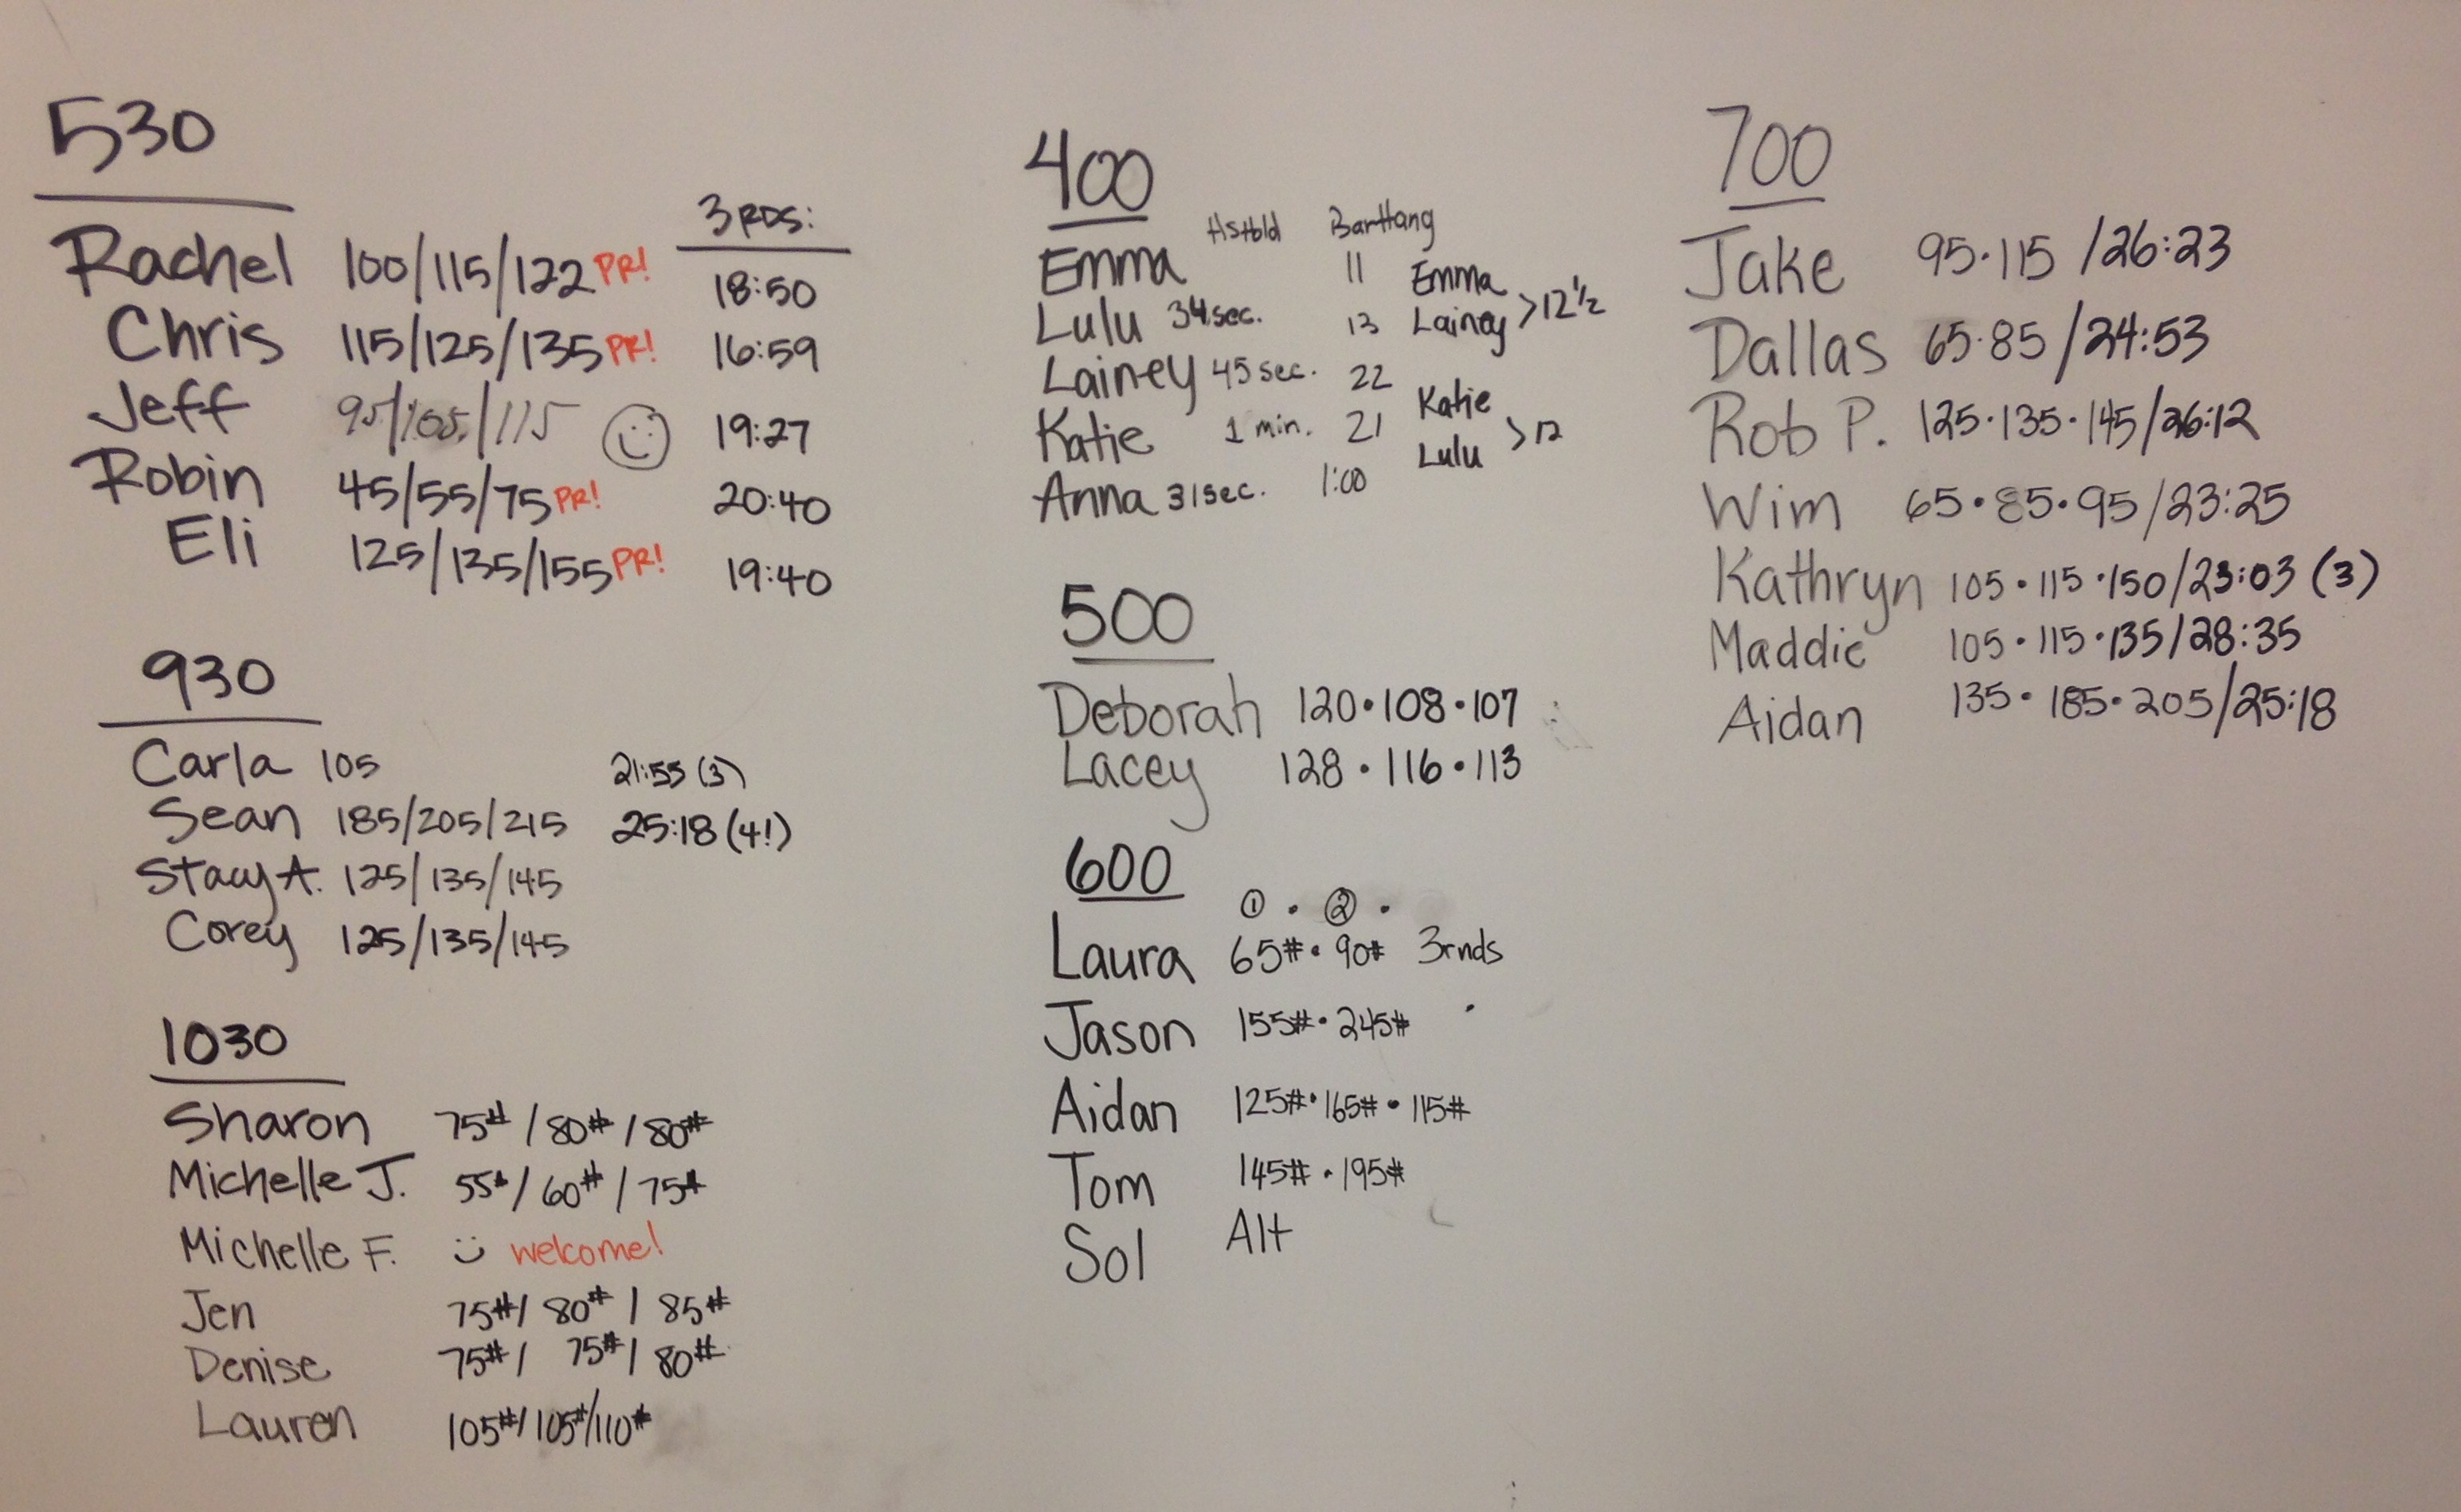 530
3 RDS:
Rachel 100/115/122 PR! 18:50
Chris 115/125/135 PR! 16:59
Jeff 95/105/115 19:27
Robin 45/55/75 PR! 20:40
Eli 125/135/155 PR! 19:40
930
Carla 105 21:55 (3)
Sean 185/205/215 25:18 (4!)
Stacy A. 125/135/145
Corey 125/135/145
1030
Sharon 75# / 80# / 80#
Michelle J. 55# / 60# / 75#
Michelle F. :) welcome!
Jen 75# / 80# / 85#
Denise 75# / 75# / 80#
Lauren 105# / 105# / 110#
400
HsHold BarHang
Emma 11
Lulu 34 sec. 13
Lainey 45 sec. 22
Katie 1 min. 21
Anna 31 sec. 1:00
Emma
Lainey >12 1/2
Katie
Lulu >12
500
Deborah 120 • 108 • 107
Lacey 128 • 116 • 113
600
① • ② •
Laura 65# • 90# 3rnds
Jason 155# • 245#
Aidan 125# • 165# • 115#
Tom 145# • 195#
Sol Alt
700
Jake 95 • 115 / 26:23
Dallas 65 • 85 / 24:53
Rob P. 125 • 135 • 145 / 26:12
Wim 65 • 85 • 95 / 23:25
Kathryn 105 • 115 • 150 / 23:03 (3)
Maddie 105 • 115 • 135 / 28:35
Aidan 135 • 185 • 205 / 25:18